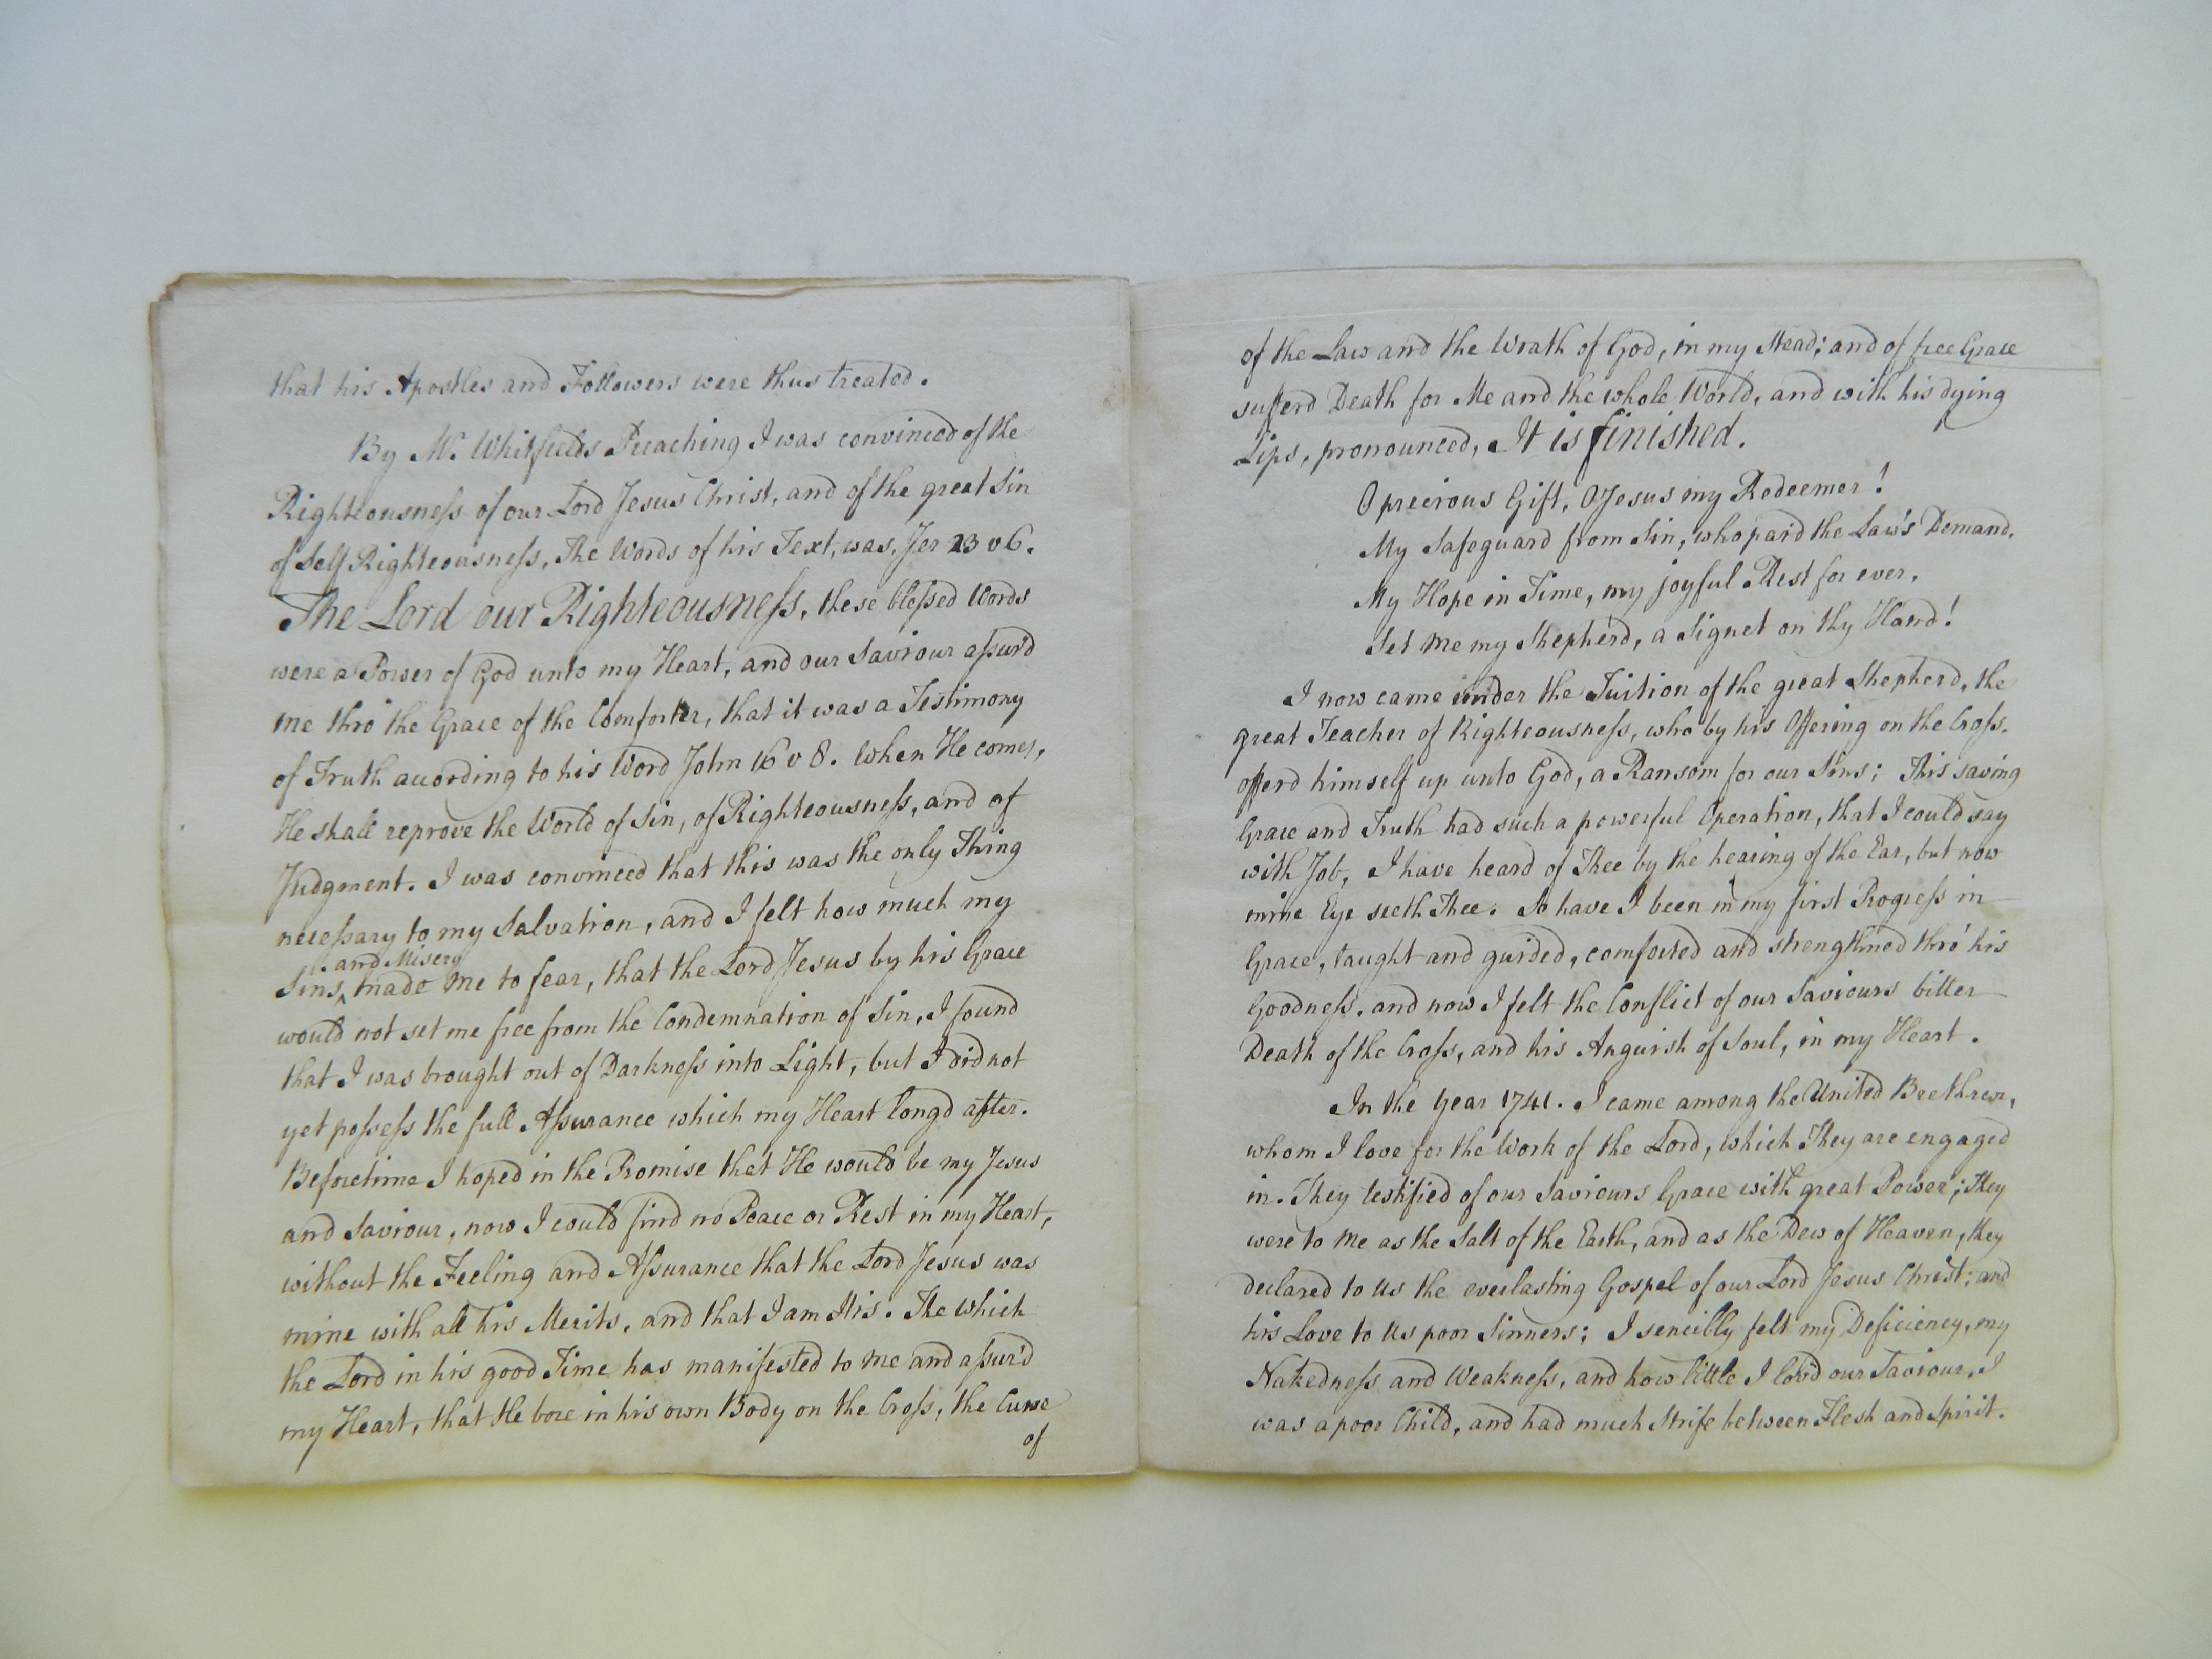 that his Apostles and Followers were thus treated.
By Mr. Whitfields Preaching I was convinced of the
Righteousness of our Lord Jesus Christ, and of the great Sin
of Self Righteousness, The Words of his Text, was, Jer 23 v 6.
The Lord our Righteousness, these blessed Words
were a Power of God unto my Heart, and our Saviour assur'd
me thro' the Grace of the Comforter, that it was a Testimony
of Truth according to his Word John 16 v 8. When He comes,
He shall reprove the World of Sin, of Righteousness, and of
Judgment. I was convinced that this was the only Thing
necessary to my Salvation, and I felt how much my
and Misery
Sins ‸ made me to fear, that the Lord Jesus by his Grace
would not set me free from the Condemnation of Sin, I found
that I was brought out of Darkness into Light, but I did not
yet possess the full Assurance which my Heart long'd after.
Beforetime I hoped in the Promise that He would be my Jesus
and Saviour, now I could find no Peace or Rest in my Heart,
without the Feeling and Assurance that the Lord Jesus was
mine with all his Merits, and that I am His. The which
the Lord in his good Time has manifested to me and assur'd
my Heart, that He bore in his own Body on the Cross, the Curse
of
of the Law and the Wrath of God, in my Stead; and of free Grace
sufferd Death for Me and the whole World, and with his dying
Lips, pronounced, It is finished.
O precious Gift, O Jesus my Redeemer!
My Safeguard from Sin, who paid the Law's Demand,
My Hope in Time, my joyful Rest for ever,
Set me my Shepherd, a Signet on thy Hand!
I now came under the Tuition of the great Shepherd, the
great Teacher of Righteousness, who by his Offering on the Cross,
offerd himself up unto God, a Ransom for our Sins; This saving
Grace and Truth had such a powerful Operation, that I could say
with Job, I have heard of Thee by the hearing of the Ear, but now
mine Eye seeth Thee. So have I been in my first Progress in
Grace, taught and guided, comforted and strengthned thro' his
Goodness, and now I felt the Conflict of our Saviours bitter
Death of the Cross, and his Anguish of Soul, in my Heart.
In the Year 1741. I came among the United Breethren,
whom I love for the Work of the Lord, which They are engaged
in. They testified of our Saviours Grace with great Power; They
were to me as the Salt of the Earth, and as the Dew of Heaven, they
declared to us the everlasting Gospel of our Lord Jesus Christ; and
his Love to us poor Sinners; I sencibly felt my Deficiency, my
Nakedness and Weakness, and how little I lov'd our Saviour, I
was a poor Child, and had much Strife between Flesh and Spirit.